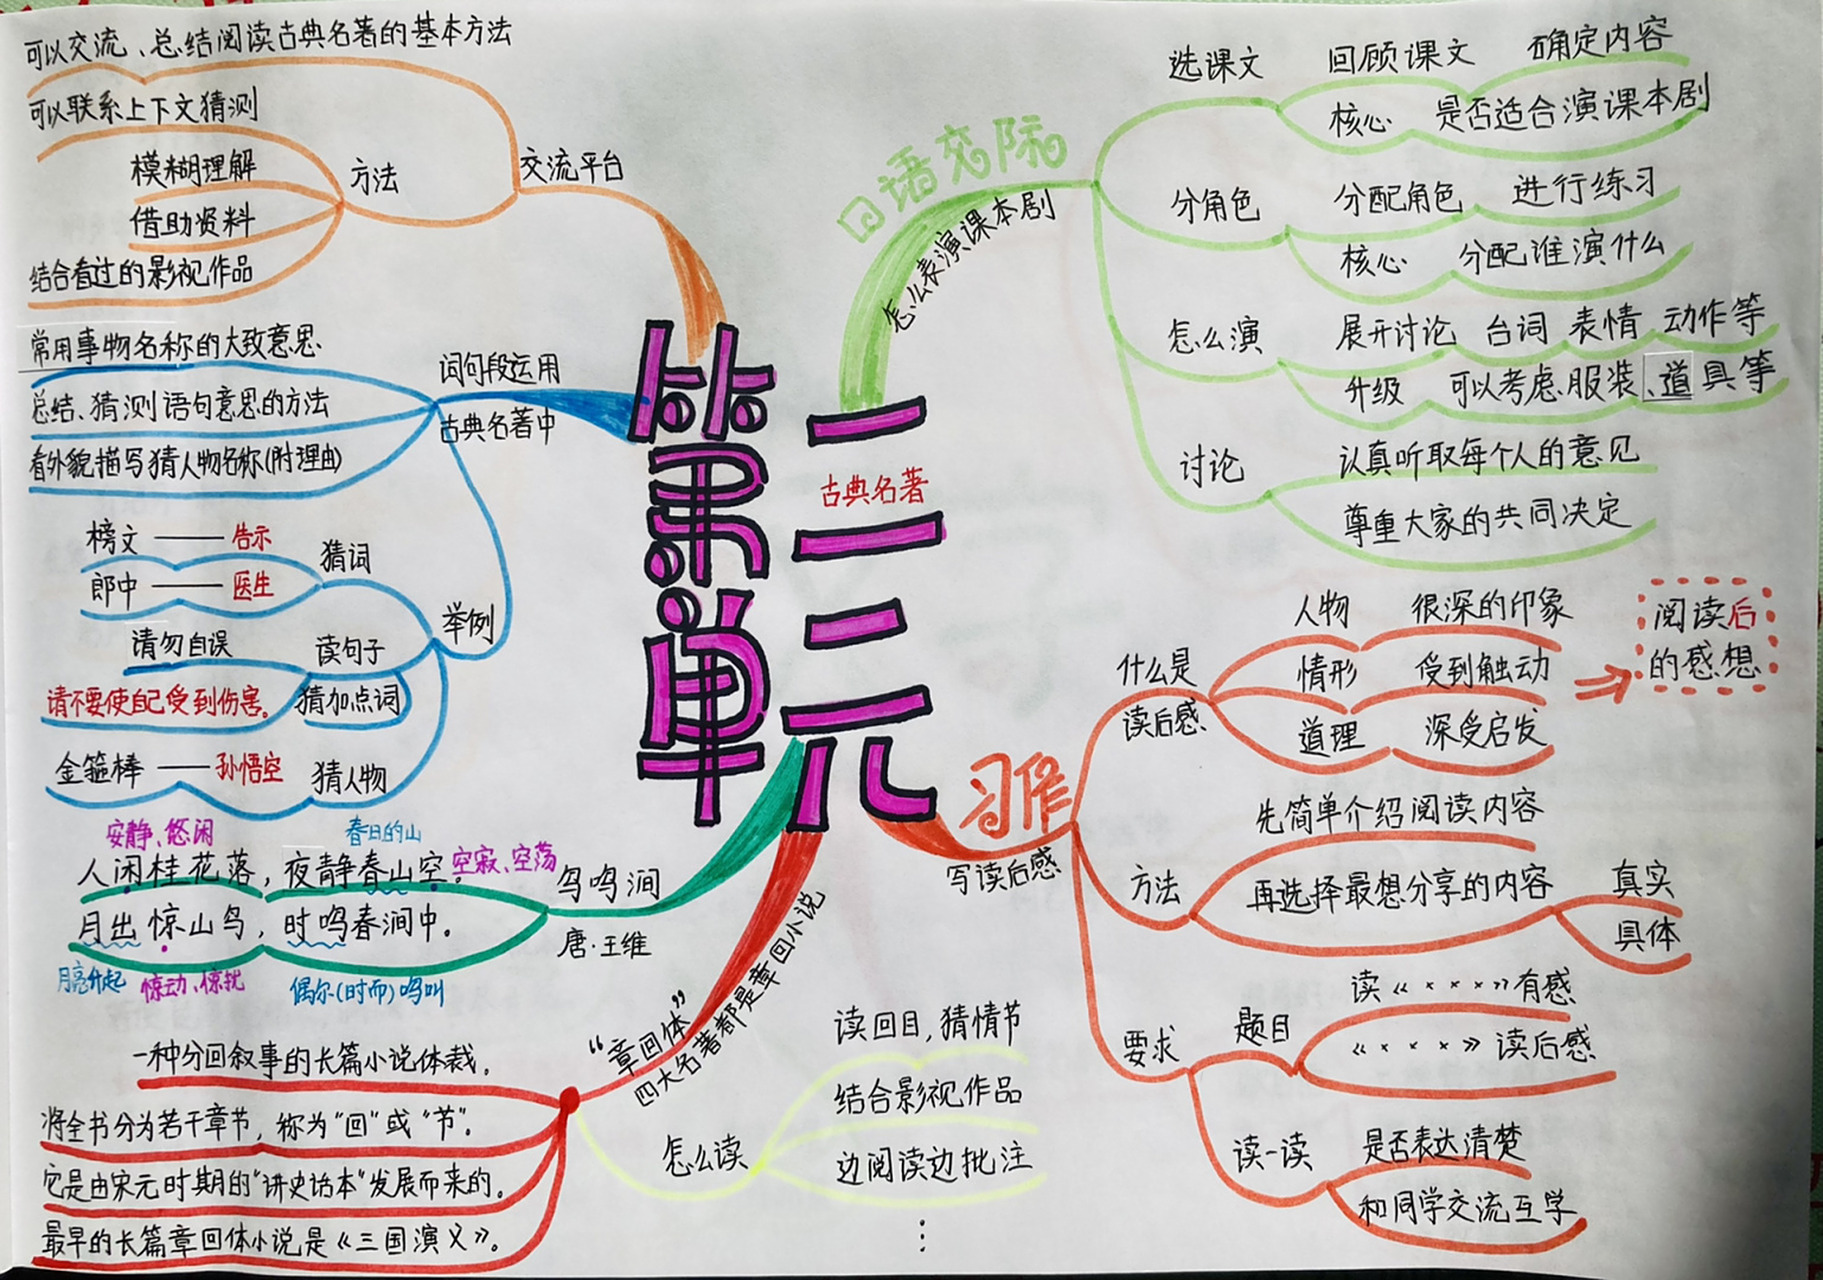 第二单元
古典名著
可以交流、总结阅读古典名著的基本方法
可以联系上下文猜测
模糊理解
借助资料
结合看过的影视作品
方法
交流平台
常用事物名称的大致意思
总结、猜测语句意思的方法
看外貌描写猜人物名称(附理由)
词句段运用
古典名著中
榜文——告示
郎中——医生
猜词
举例
请勿自误
读句子
请不要使自己受到伤害。
猜加点词
金箍棒——孙悟空
猜人物
安静、悠闲
春日的山
人闲桂花落，夜静春山空。
空寂、空荡
月出惊山鸟，时鸣春涧中。
月亮升起
惊动、惊扰
偶尔(时而)鸣叫
鸟鸣涧
唐·王维
“章回体”
四大名著都是章回小说
一种分回叙事的长篇小说体裁.
将全书分为若干章节，称为“回”或“节”.
它是由宋元时期的“讲史话本”发展而来的.
最早的长篇章回体小说是《三国演义》。
怎么读
读回目，猜情节
结合影视作品
边阅读边批注
⋮
口语交际
怎么表演课本剧
选课文
回顾课文
确定内容
核心
是否适合演课本剧
分角色
分配角色
进行练习
核心
分配谁演什么
怎么演
展开讨论
台词
表情
动作等
升级
可以考虑服装、道具等
讨论
认真听取每个人的意见
尊重大家的共同决定
习作
写读后感
什么是
读后感
人物
很深的印象
情形
受到触动
道理
深受启发
阅读后
的感想
方法
先简单介绍阅读内容
再选择最想分享的内容
真实
具体
要求
题目
读《×××》有感
《×××》读后感
读一读
是否表达清楚
和同学交流互学